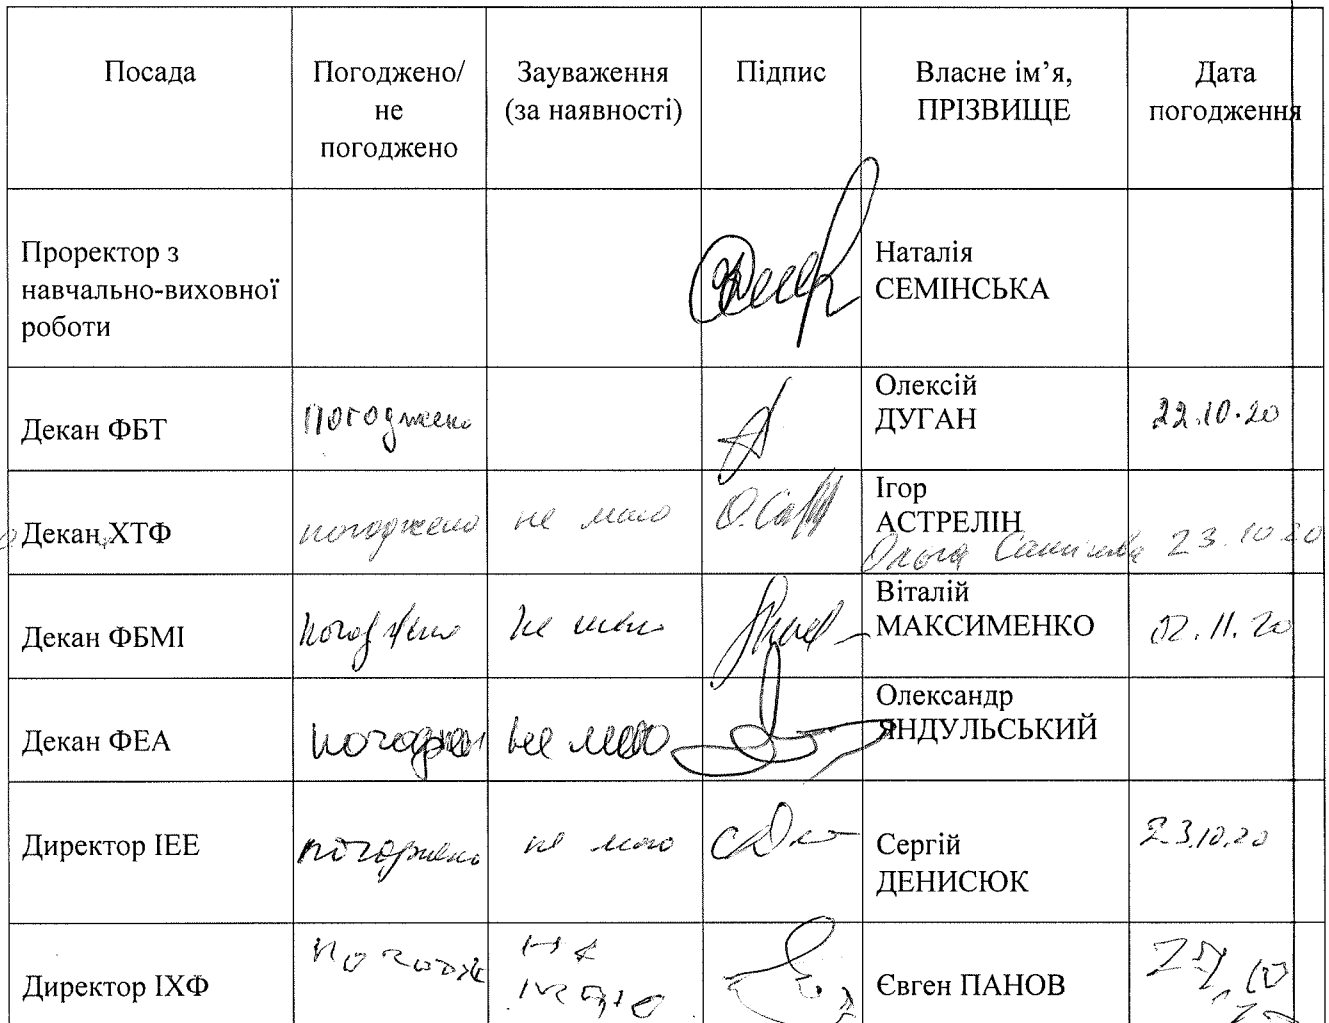 Посада
Погоджено/
не
погоджено
Зауваження
(за наявності)
Підпис
Власне ім’я,
ПРІЗВИЩЕ
Дата
погодження
Проректор з
навчально-виховної
роботи
Наталія
СЕМІНСЬКА
Декан ФБТ
погоджено
Олексій
ДУГАН
22.10.20
Декан ХТФ
погоджено
не маю
Ігор
АСТРЕЛІН
Ольга
23.10.20
Декан ФБМІ
погоджено
не маю
Віталій
МАКСИМЕНКО
02.11.20
Декан ФЕА
не маю
Олександр
ЯНДУЛЬСЬКИЙ
Директор ІЕЕ
погоджено
не маю
Сергій
ДЕНИСЮК
23.10.20
Директор ІХФ
не
маю
Євген ПАНОВ